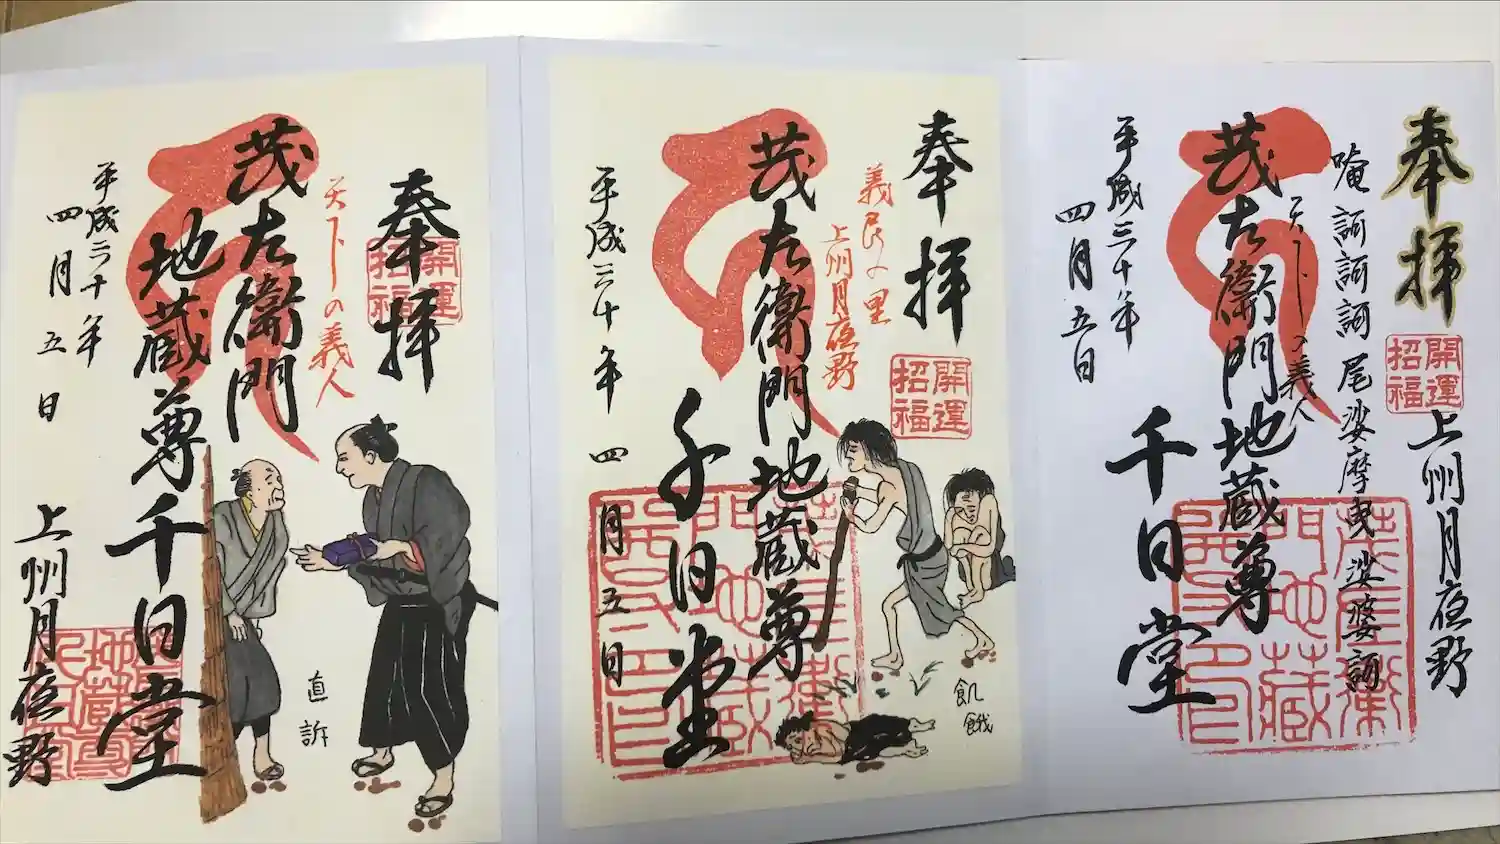 奉拝
開運
招福
上州月夜野
唵訶訶訶尾娑摩曳娑婆訶
天下の義人
茂左衛門地蔵尊
千日堂
平成三十年
四月五日
茂左衛
門地蔵
奉拝
開運
招福
義民の里
上州月夜野
茂左衛門地蔵尊
千日堂
平成三十年四月五日
飢餓
門地蔵
奉拝
開運
招福
天下の義人
茂左衛門
地蔵尊千日堂
平成三十年
四月五日
上州月夜野
直訴